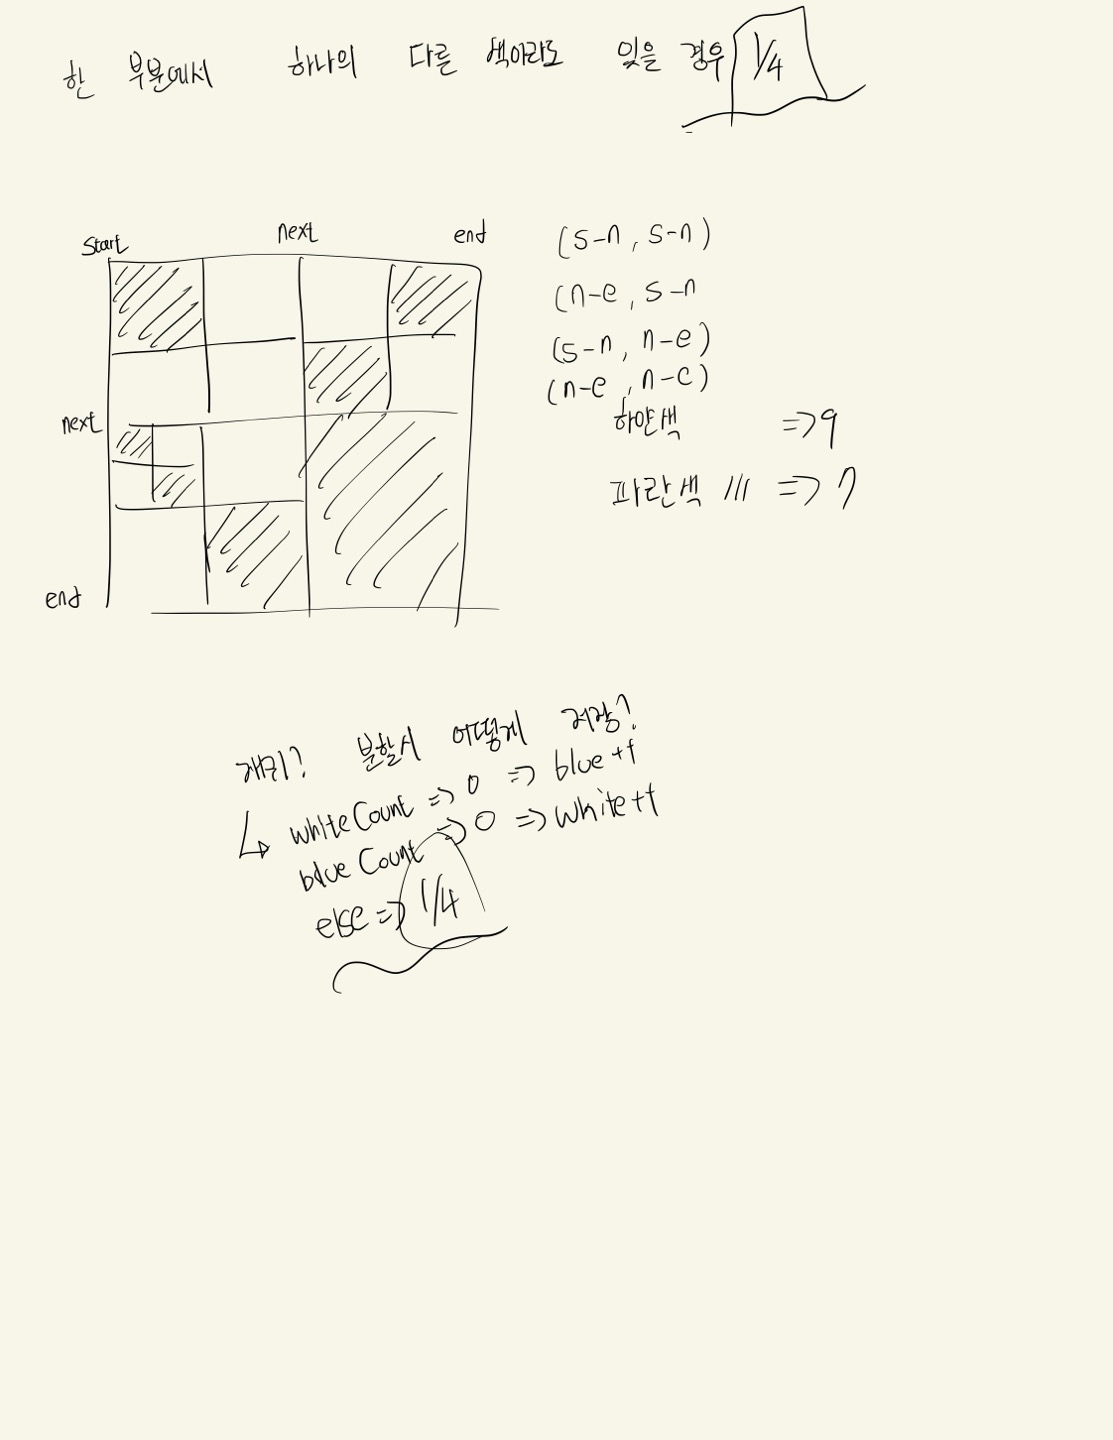 한 부분에서 하나의 다른 색이라도 있을 경우 1/4
start next end
(s-n, s-n)
(n-e, s-n
(s-n, n-e)
(n-e, n-e)
next
하얀색 => 9
파란색 /// => 7
end
재귀? 분할시 어떻게 저장?
↳ whiteCount => 0 => blue++
blueCount => 0 => white++
else => 1/4